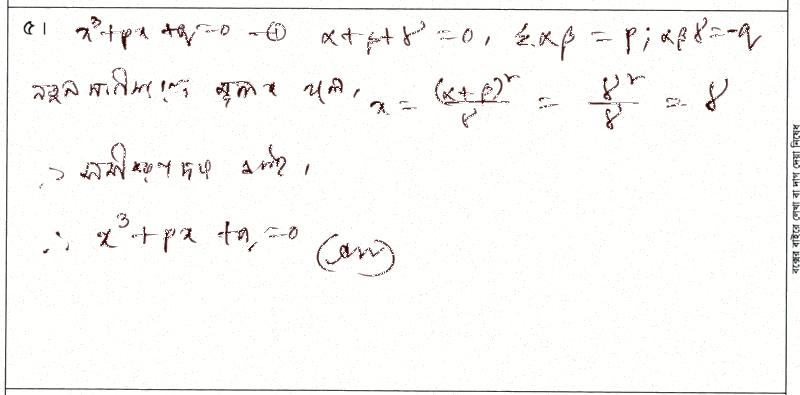 ৫। x³+px+q=0 —① α+β+γ=0, Σαβ = p; αβγ=-q
নতুন সমীকরণের মূল x হলে, x = (α+β)²/γ = γ²/γ = γ
∴ x³+px+q=0 (Ans)
বক্সের বাইরে লেখা বা দাগ দেয়া নিষেধ